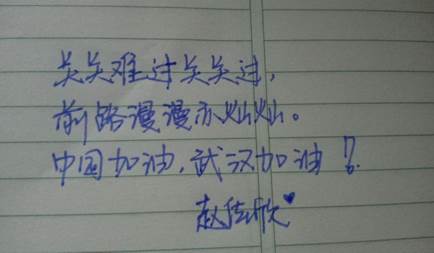 关关难过关关过，
前路漫漫亦灿灿。
中国加油，武汉加油！
赵佳欣